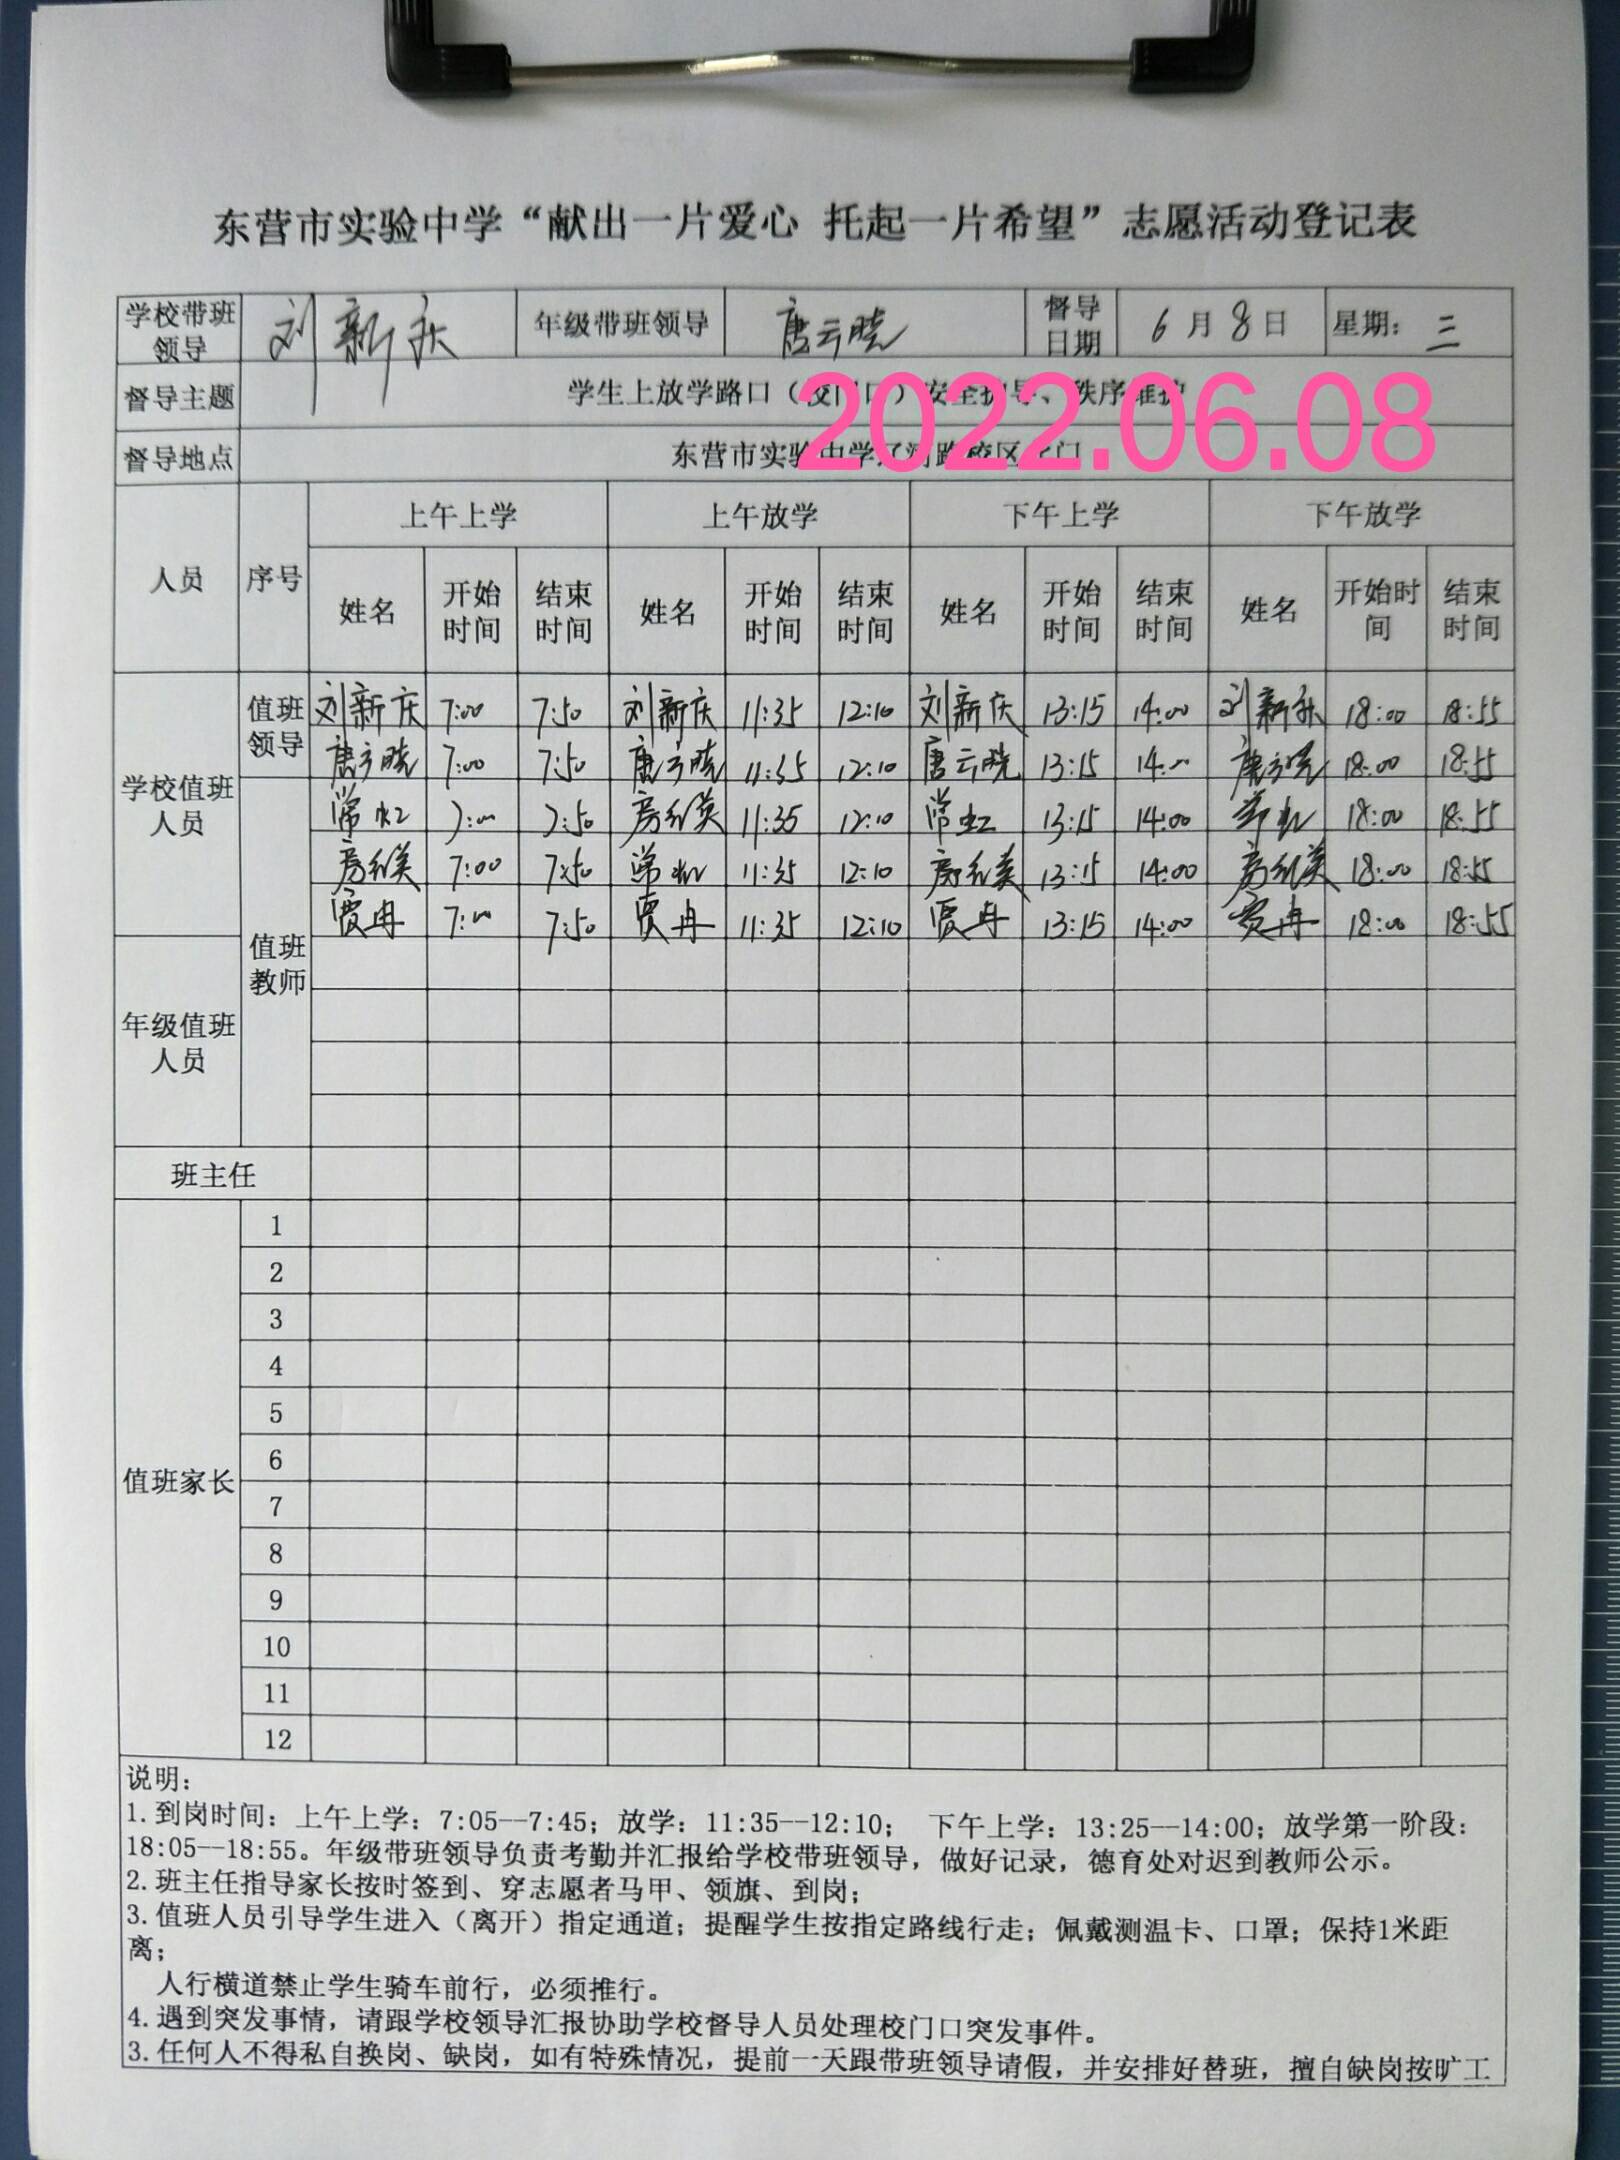 东营市实验中学“献出一片爱心 托起一片希望”志愿活动登记表
学校带班领导 刘新庆 年级带班领导 唐云晓 督导日期 6月8日 星期：三
督导主题 学生上放学路口（校门口）安全护导、秩序维护
2022.06.08
督导地点 东营市实验中学辽河路校区 门
人员 序号 上午上学 上午放学 下午上学 下午放学
姓名 开始时间 结束时间 姓名 开始时间 结束时间 姓名 开始时间 结束时间 姓名 开始时间 结束时间
学校值班人员 值班领导 刘新庆 7:00 7:50 刘新庆 11:35 12:10 刘新庆 13:15 14:00 刘新庆 18:00 18:55
唐云晓 7:00 7:50 唐云晓 11:35 12:10 唐云晓 13:15 14:00 唐云晓 18:00 18:55
值班教师 常虹 7:00 7:50 房红美 11:35 12:10 常虹 13:15 14:00 常虹 18:00 18:55
房红美 7:00 7:50 常虹 11:35 12:10 房红美 13:15 14:00 房红美 18:00 18:55
贾冉 7:00 7:50 贾冉 11:35 12:10 贾冉 13:15 14:00 贾冉 18:00 18:55
年级值班人员
班主任
值班家长
1
2
3
4
5
6
7
8
9
10
11
12
说明：
1.到岗时间：上午上学：7:05--7:45；放学：11:35--12:10； 下午上学：13:25--14:00；放学第一阶段：
18:05--18:55。年级带班领导负责考勤并汇报给学校带班领导，做好记录，德育处对迟到教师公示。
2.班主任指导家长按时签到、穿志愿者马甲、领旗、到岗；
3.值班人员引导学生进入（离开）指定通道；提醒学生按指定路线行走；佩戴测温卡、口罩；保持1米距
离；
人行横道禁止学生骑车前行，必须推行。
4.遇到突发事情，请跟学校领导汇报协助学校督导人员处理校门口突发事件。
3.任何人不得私自换岗、缺岗，如有特殊情况，提前一天跟带班领导请假，并安排好替班，擅自缺岗按旷工